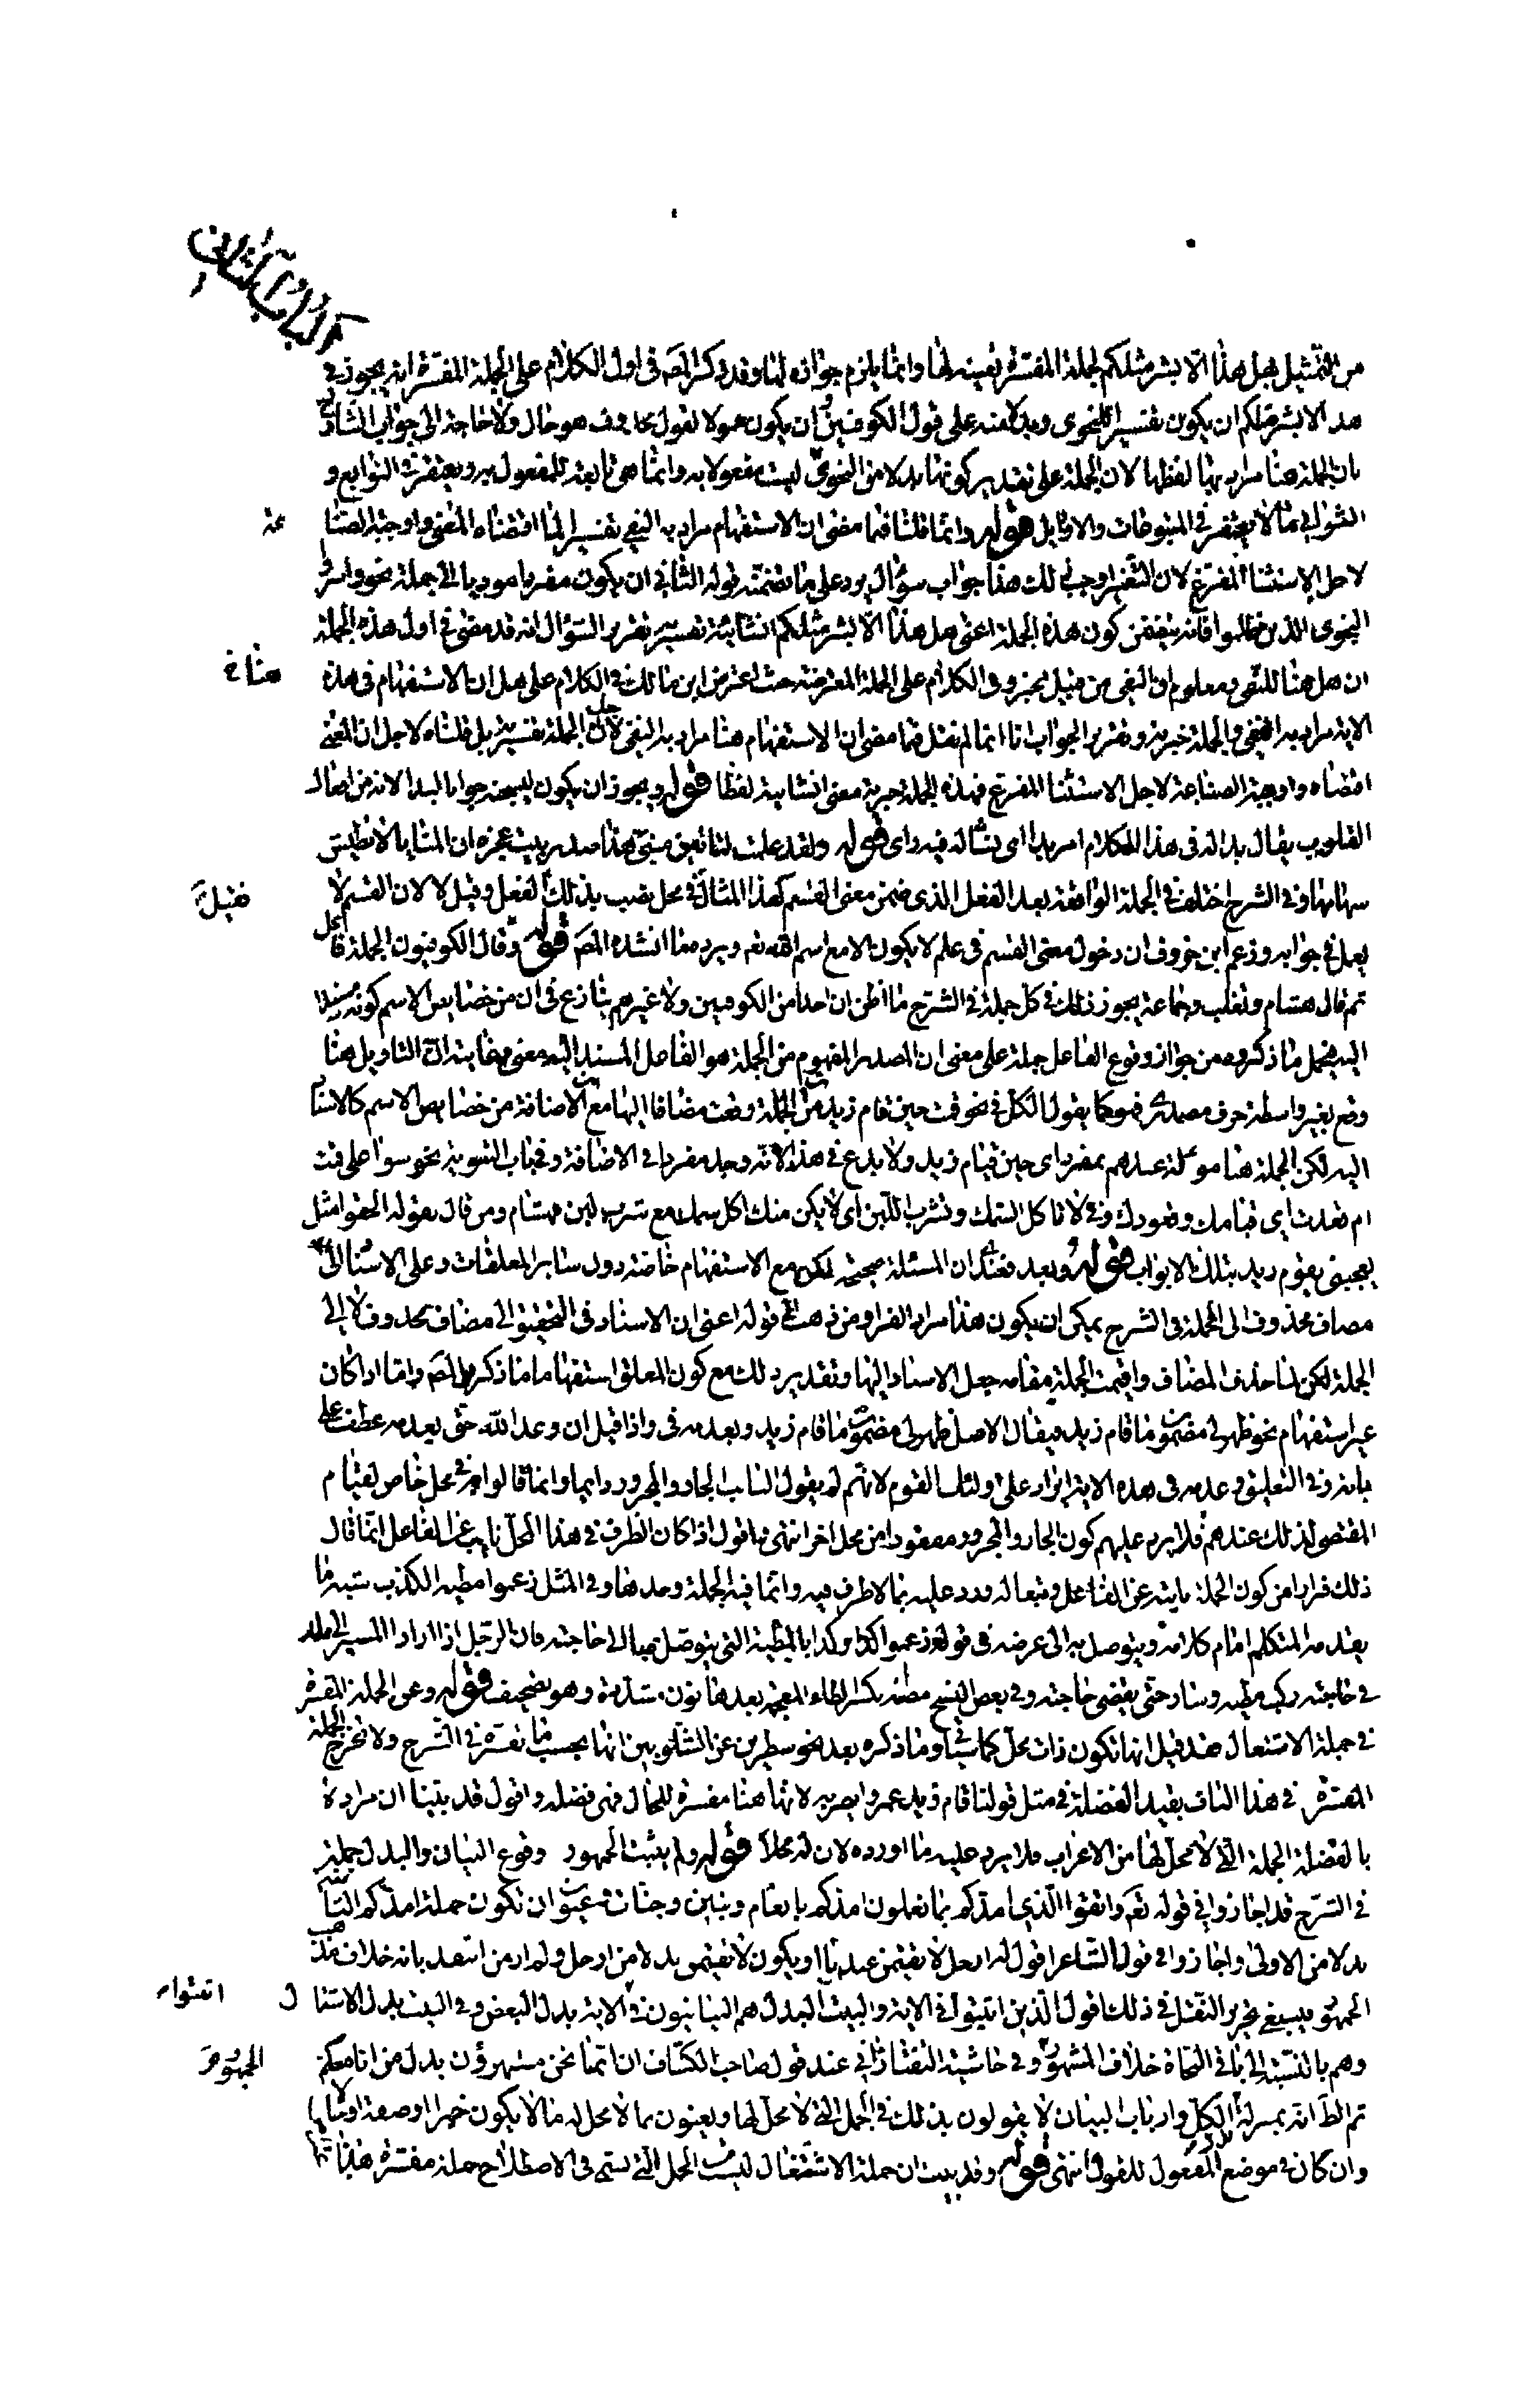 الباب الثاني
من التمثيل بهل هذا الا بشر مثلكم لجملة المفسرة تعينه لها وانما يلزم جوازه لها وقد ذكر المص في اول الكلام على الجملة المفسرة انه يجوز في
هذا الا بشر مثلكم ان يكون تفسيرا للنجوى وبدلا منه على قول الكوفيين وان يكون معمولا لقول محذوف هو حال ولا حاجة الى جواب الشارح
بان الجملة هنا مراد بها لفظها لان الجملة على تقدير كونها بدلا من النجوى ليست مفعولا به وانما هي تابعة للمفعول به ويغتفر في التوابع و
الثواني ما لا يغتفر في المتبوعات والاوايل قوله وانما قلنا فيما مضى ان الاستفهام مراد به النفي تفسيرا لما اقتضاه المعنى واوجبته الصناعة
لاجل الاستثنا المفرغ لان التفسير اوجب ذلك هذا جواب سؤال يرد على ما تضمنته قوله الثاني ان يكون مفردا موديا الى جملة نحو واسروا
النجوى الذين ظلموا فانه يتضمن كون هذه الجملة اعني هل هذا الا بشر مثلكم انشائية تفسيرية تقرير السؤال انه قد مضى في اول هذه الجملة
ان هل هنا للنفي ومعلوم ان النفي من قبيل الخبر وفي الكلام على الجملة المعترضة حيث اعترض ابن مالك في الكلام على هل ان الاستفهام في هذه هنا خ
الاية مراد به النفي والجملة خبرية وتقرير الجواب انا انما لم نقل فيما مضى ان الاستفهام هنا مراد به النفي لاجل ان الجملة تفسيرية بل قلناه لاجل ان المعنى
اقتضاه واوجبته الصناعة لاجل الاستثنا المفرغ فهذه الجملة خبرية معنى انشائية لفظا قوله ويجوز ان يكون ليسجننه جوابا لبدا لانه من افعال
القلوب يقال بدا له في هذا الكلام امر بدا اي نشا له فيه راي قوله ولقد علمت لتاتين منيتي هذا صدر بيت عجزه ان المنايا لا تطيش
سهامها وفي الشرح اختلف في الجملة الواقعة بعد الفعل الذي ضمن معنى القسم كهذا المثال في محل نصب بذلك الفعل وقيل لا لان القسم لا فقيل
يعمل في جوابه وزعم ابن خروف ان دخول معنى القسم في علم لا يكون الا مع اسم الله تعه ويرده ما انشده المص قوله وقال الكوفيون الجملة فاعل
ثم قال هشام وثعلب وجماعة يجوز ذلك في كل جملة في الشرح ما اظن ان احدا من الكوفيين ولا غيرهم ينازع في ان من خصايص الاسم كونه مسندا
اليه فيحمل ما ذكروه من جواز وقوع الفاعل جملة على معنى ان المصدر المفهوم من الجملة هو الفاعل المسند اليه معنى وغايته ان التاويل هنا
وقع بغير واسطة حرف مصدري فهو كما يقول الكل في نحو قمت حين قام زيد من ان الجملة وقعت مضافا اليها مع ان الاضافة من خصايص الاسم كالاسناد
اليه لكن الجملة هنا مؤولة عندهم بمفرد اي حين قيام زيد ولا بدع في هذا لانه وجد مفردا في الاضافة وفي باب التسوية نحو سوا علي قمت
ام قعدت اي قيامك وقعودك وفي لا تاكل السمك وتشرب اللبن اي لا يكن منك اكل سمك مع شرب لبن هشام ومن قال بقوله الحقوا مثل
يعجبني يقوم زيد بتلك الابواب قوله وبعد فعندي ان المسئلة صحيحة لكن مع الاستفهام خاصة دون سائر المعلقات وعلى ان الاسناد الى
مضاف محذوف الى الجملة في الشرح يمكن ان يكون هذا مراد الفرا ومن ذهب الى قوله اعني ان الاسناد في التحقيق الى مضاف محذوف لا الى
الجملة لكن لما حذف المضاف واقيمت الجملة مقامه جعل الاسناد اليها وتقدير ذلك مع كون المعلق استفهاما ما ذكره المص واما اذا كان
غير استفهام نحو ظهر لي ما قام زيد فيقال الاصل ظهر لي مضمون ما قام زيد وبعده في واذا قيل ان وعد الله حق بعده عطف على
بابه وفي التعليق وعدمه في هذه الاية ايراد على اولئك القوم لانهم لم يقول النايب الجار والمجرور دايما وانما قالوا به في محل خاص لقيام
المقتضي لذلك عندهم فلا يرد عليهم كون الجار والمجرور مفقودا من محل اخر انتهى واقول اذا كان الظرف في هذا المحل نايب عن الفاعل انما قال
ذلك فرارا من كون الجملة نايبة عن الفاعل ومتعاله ورد عليه بما لا ظرف فيه وانما فيه الجملة وحدها وفي المثل زعموا مطية الكذب شبه ما
يقدمه المتكلم امام كلامه ويتوصل به الى غرضه في قوله زعموا كذا وكذا بالمطية التي يتوصل بها الى حاجته فان الرجل اذا اراد المسير الى بلد
في حاجته ركب مطيه وسار حتى يقضي حاجته وفي بعض النسخ مظنه بكسر الظاء المعجمة بعدها نون مشددة وهو تصحيف قوله وعن الجملة المفسرة
في جملة الاشتغال فقد قيل انها تكون ذات محل كما سياتي وما ذكره بعد نحو سطرين عن الشلوبين انها بحسب ما تفسره في الشرح ولا تخرج الجملة
المفسرة في هذا الباب بقيد الفضلة في مثل قولنا قام زيد عمرو ايضربه لانها هنا مفسرة للحال فهي فضلة واقول قد بينا ان مراده
بالفضلة الجملة التي لا محل لها من الاعراب فلا يرد عليه ما اورده لان له محلا قوله ولم يثبت الجمهور وقوع البيان والبدل جملة
في الشرح قد اجازوا في قوله تعه واتقوا الذي امدكم بما تعلمون امدكم بانعام وبنين وجنات وعيون ان تكون جملة امدكم الثانية
بدلا من الاولى واجازوا في قول الشاعر اقول له ارحل لا تقيمن عندنا ان يكون لا تقيمن بدلا من ارحل ولم ار من انتقد بانه خلاف مذهب
الجمهور فينبغي تحرير النقل في ذلك اقول الذين اثبتوا في الاية والبيت البدل هم البيانيون ففي الاية بدل البعض وفي البيت بدل الاشتمال اثبتوا
وهم بالنسبة الى باقي النحاة خلاف المشهور وفي حاشية التفتازاني عند قول صاحب الكشاف ان انما نحن مستهزؤن بدل من انا معكم الجمهور
ثم الظ انه بمنزلة الكل وارباب البيان لا يقولون بذلك في الجمل التي لا محل لها ويعنون بما لا محل له ما لا يكون خبرا او صفة او حالا
وان كان في موضع المفعول للقول انتهى قوله وقد بينت ان جملة الاشتغال ليست من الجمل التي تسمى في الاصطلاح جملة مفسرة هذا